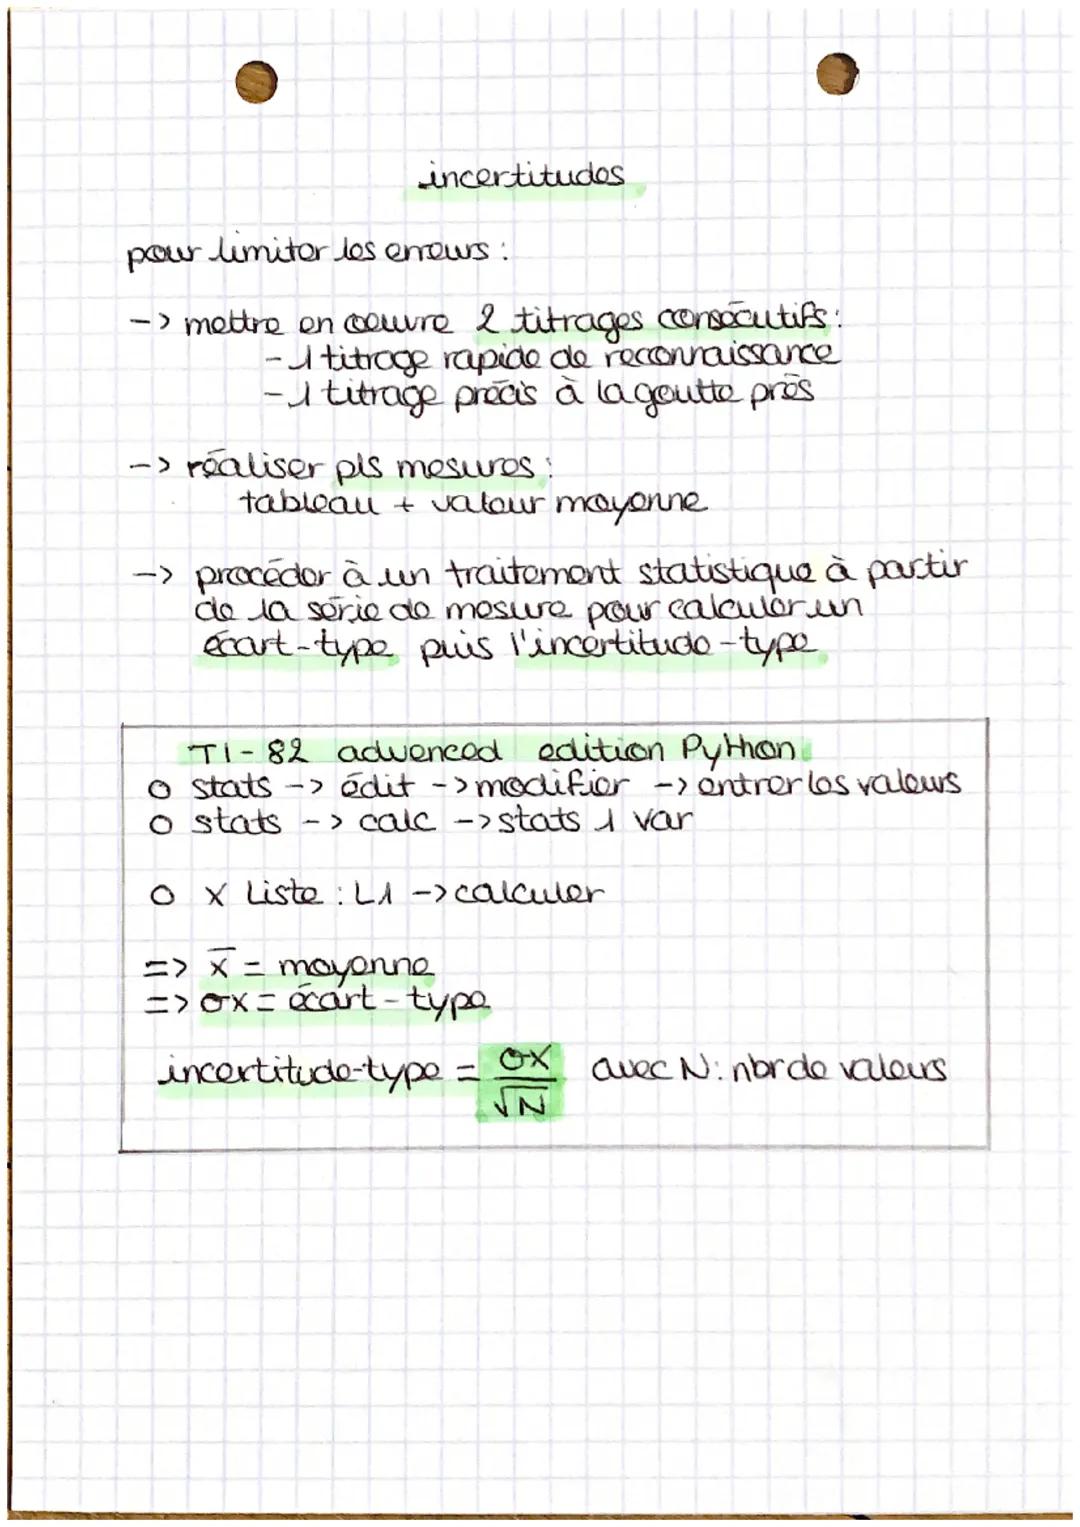 incertitudes
pour limiter les erreurs :
-> mettre en oeuvre 2 titrages consécutifs :
- 1 titrage rapide de reconnaissance
- 1 titrage précis à la goutte près
-> réaliser pls mesures :
tableau + valeur moyenne
-> procéder à un traitement statistique à partir
de la série de mesure pour calculer un
écart-type puis l'incertitude-type
TI-82 advenced edition Python
o stats -> édit -> modifier -> entrer les valeurs
o stats -> calc -> stats 1 var
o x Liste : L1 -> calculer
=> x̅ = moyenne
=> σx = écart-type
incertitude-type = σx/√N avec N : nbr de valeurs